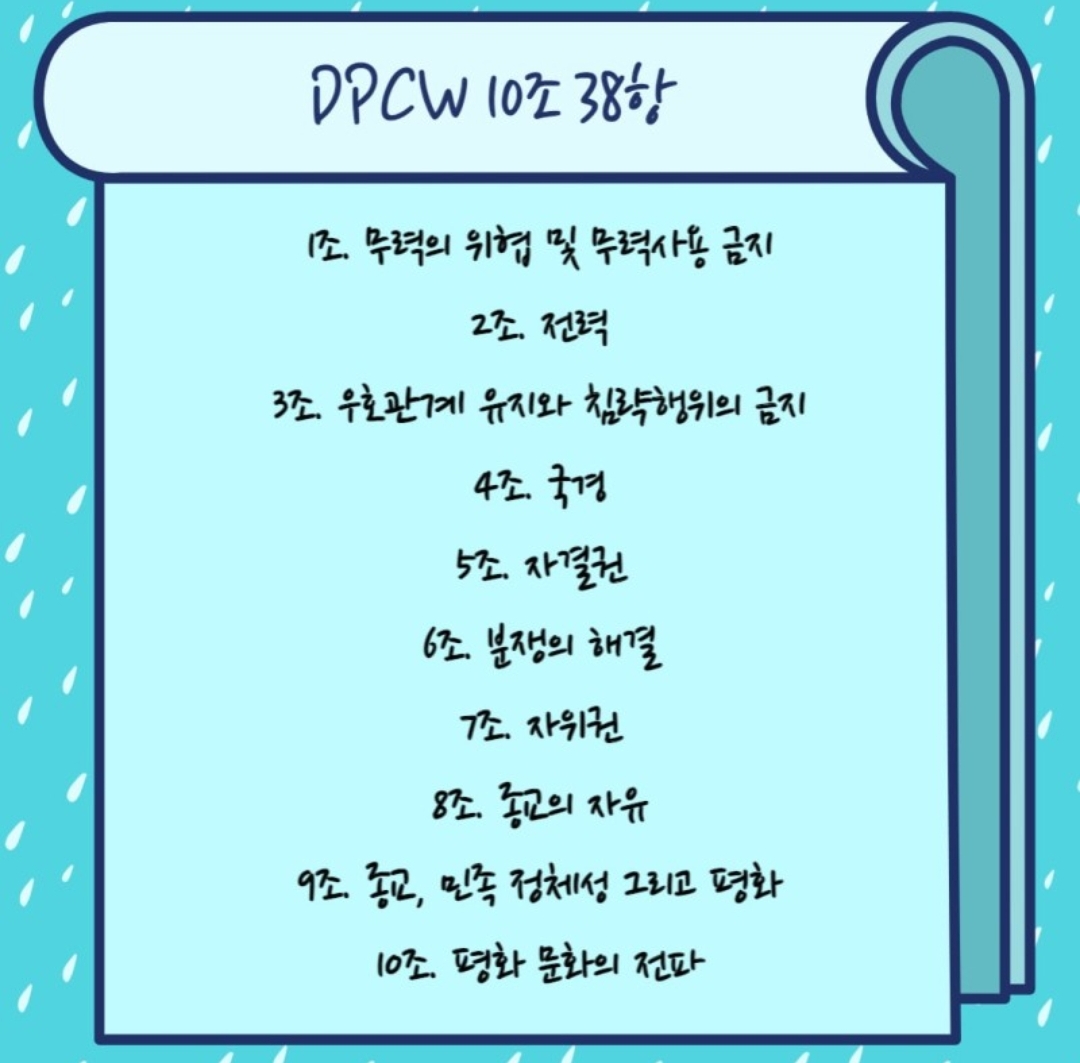 DPCW 10조 38항
1조. 무력의 위협 및 무력사용 금지
2조. 전력
3조. 우호관계 유지와 침략행위의 금지
4조. 국경
5조. 자결권
6조. 분쟁의 해결
7조. 자위권
8조. 종교의 자유
9조. 종교, 민족 정체성 그리고 평화
10조. 평화 문화의 전파